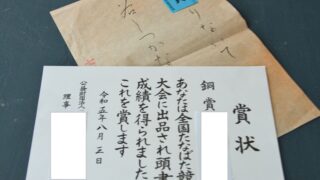 賞状
銅賞
あなたは全国たなばた競
大会に出品され頭書
成績を得られました
これを賞します
令和五年八月三日
公益財団法人
理事